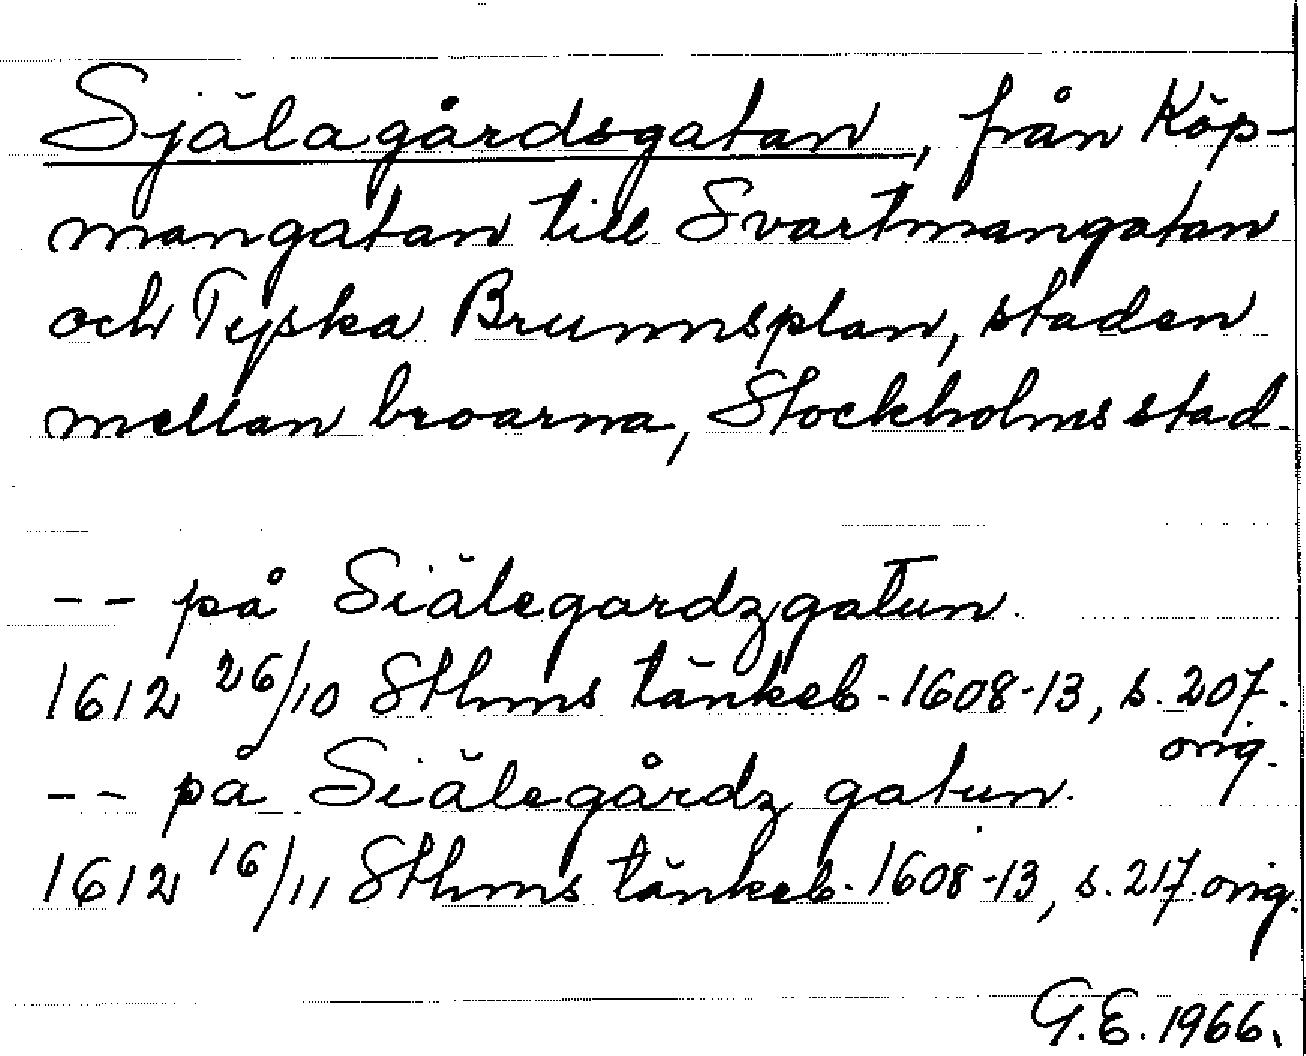 Själagårdsgatan, från Köp-
mangatan till Svartmangatan
och Tyska Brunnsplan, staden
mellan broarna, Stockholms stad.
-- på Siälegardzgatun.
1612 26/10 Sthms tänkeb. 1608-13, s. 207.
orig.
-- på Siälegårdz gatun.
1612 16/11 Sthms tänkeb. 1608-13, s. 217. orig.
G.E. 1966.